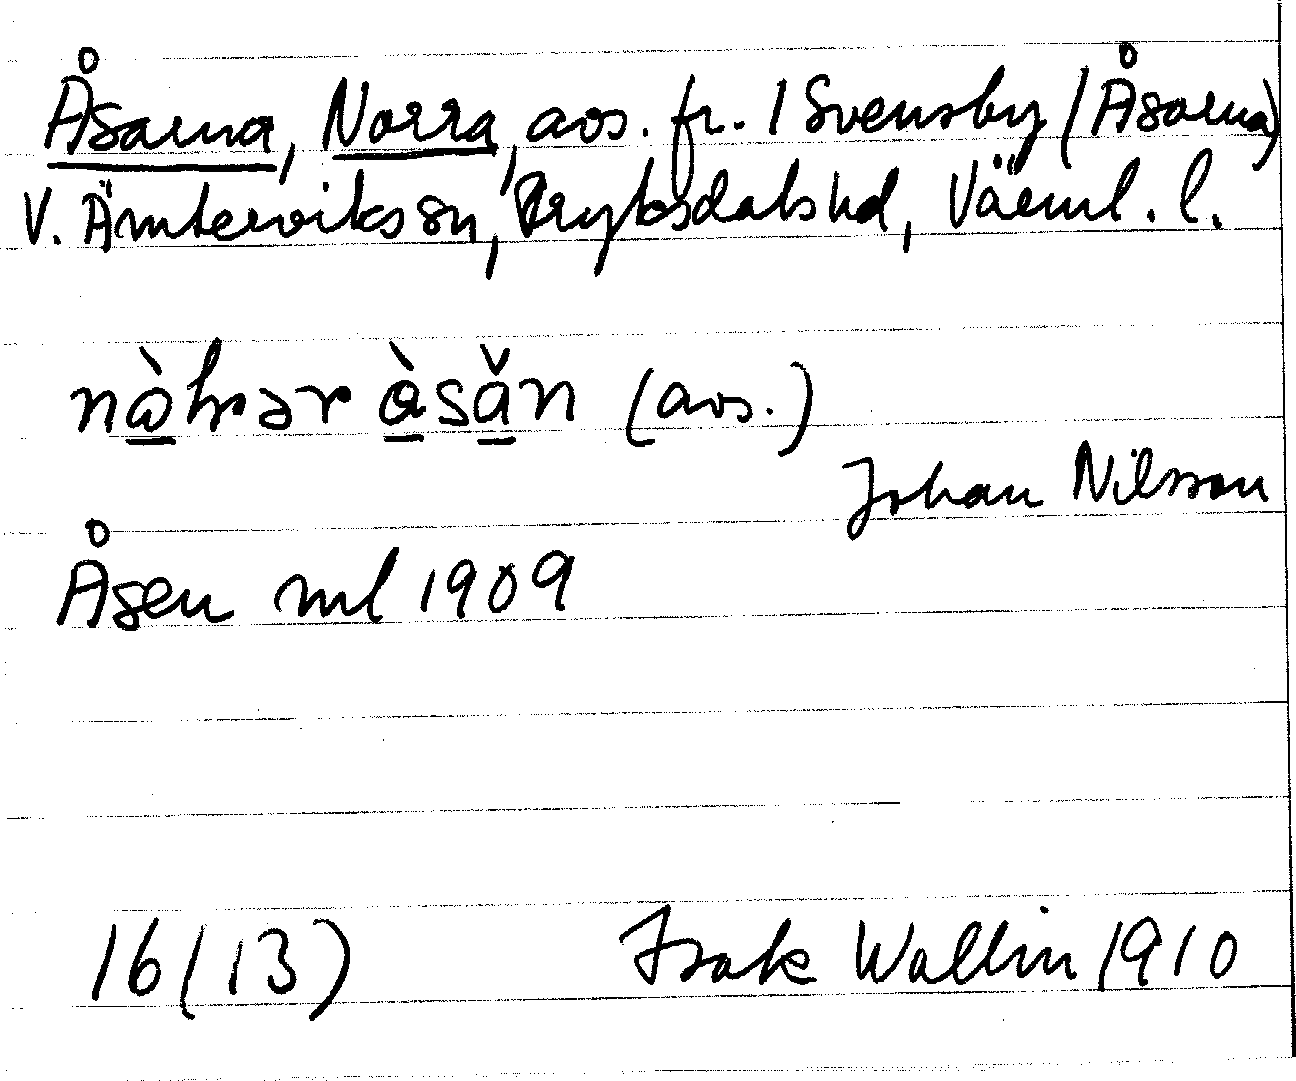 Åsarna, Norra, avs. fr. 1 Svensby (Åsarna)
V. Ämterviks sn, Fryksdals hd, Värml. l.
nɷ̀hrər àsăn (avs.)
Johan Nilsson
Åsen ml 1909
16(13) Isak Wallin 1910